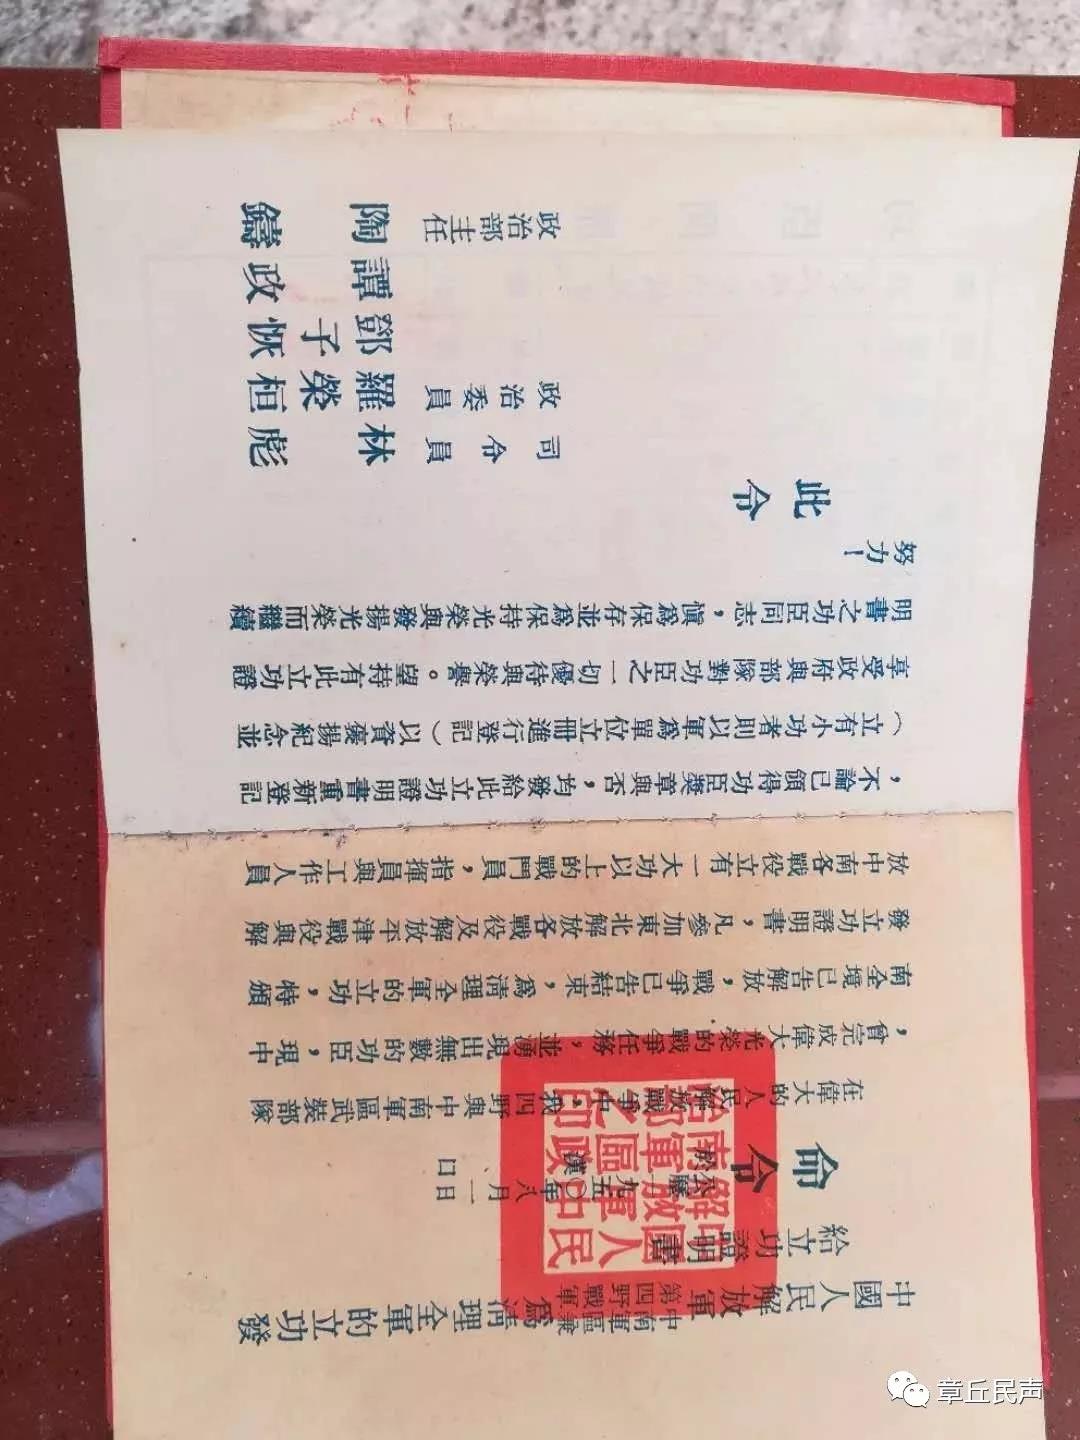 中國人民解放軍中南軍區兼第四野戰軍為清理全軍的立功發
給立功證明書
命令
九五〇年八月一日
於漢口
中國人民解放軍中南軍區政治部之印
在偉大的人民解放戰爭中，我四野與中南軍區武裝部隊
，曾完成偉大光榮的戰爭任務，並湧現出無數的功臣，現中
南全境已告解放，戰爭已告結束，為清理全軍的立功，特頒
發立功證明書，凡參加東北解放各戰役及解放平津戰役與解
放中南各戰役立有一大功以上的戰鬥員，指揮員與工作人員
，不論已頒得功臣獎章與否，均發給此立功證明書重新登記
（立有小功者則以軍為單位立冊進行登記）以資褒揚紀念並
享受政府與部隊對功臣之一切優待與榮譽。望持有此立功證
明書之功臣同志，慎為保存並為保持光榮與發揚光榮而繼續
努力！
此令
司令員 林彪
政治委員 羅榮桓
鄧子恢
譚政
政治部主任 陶鑄
章丘民声